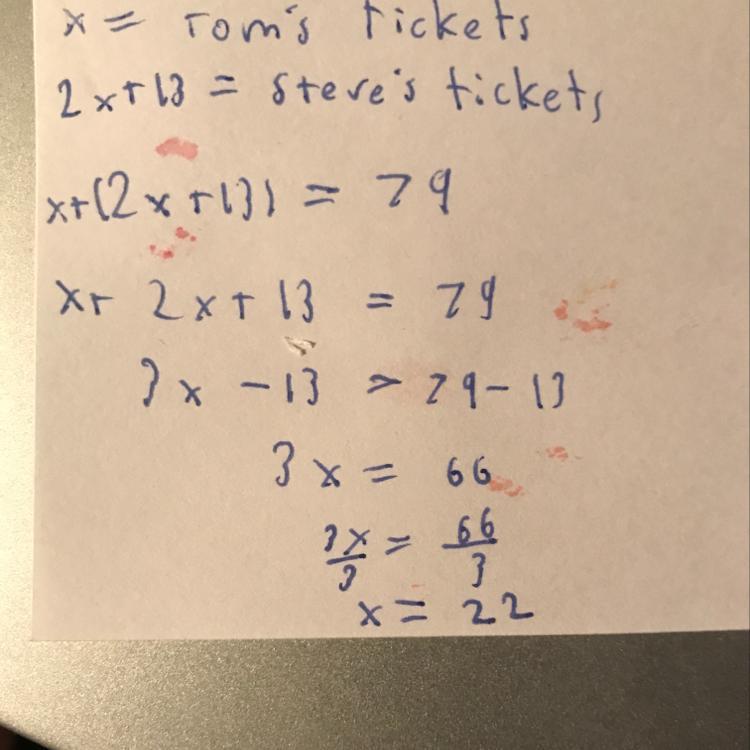 x = Tom's tickets
2x+13 = Steve's tickets
x+(2x+13) = 79
x+ 2x+13 = 79
3x -13 = 79-13
3x = 66
3x/3 = 66/3
x = 22